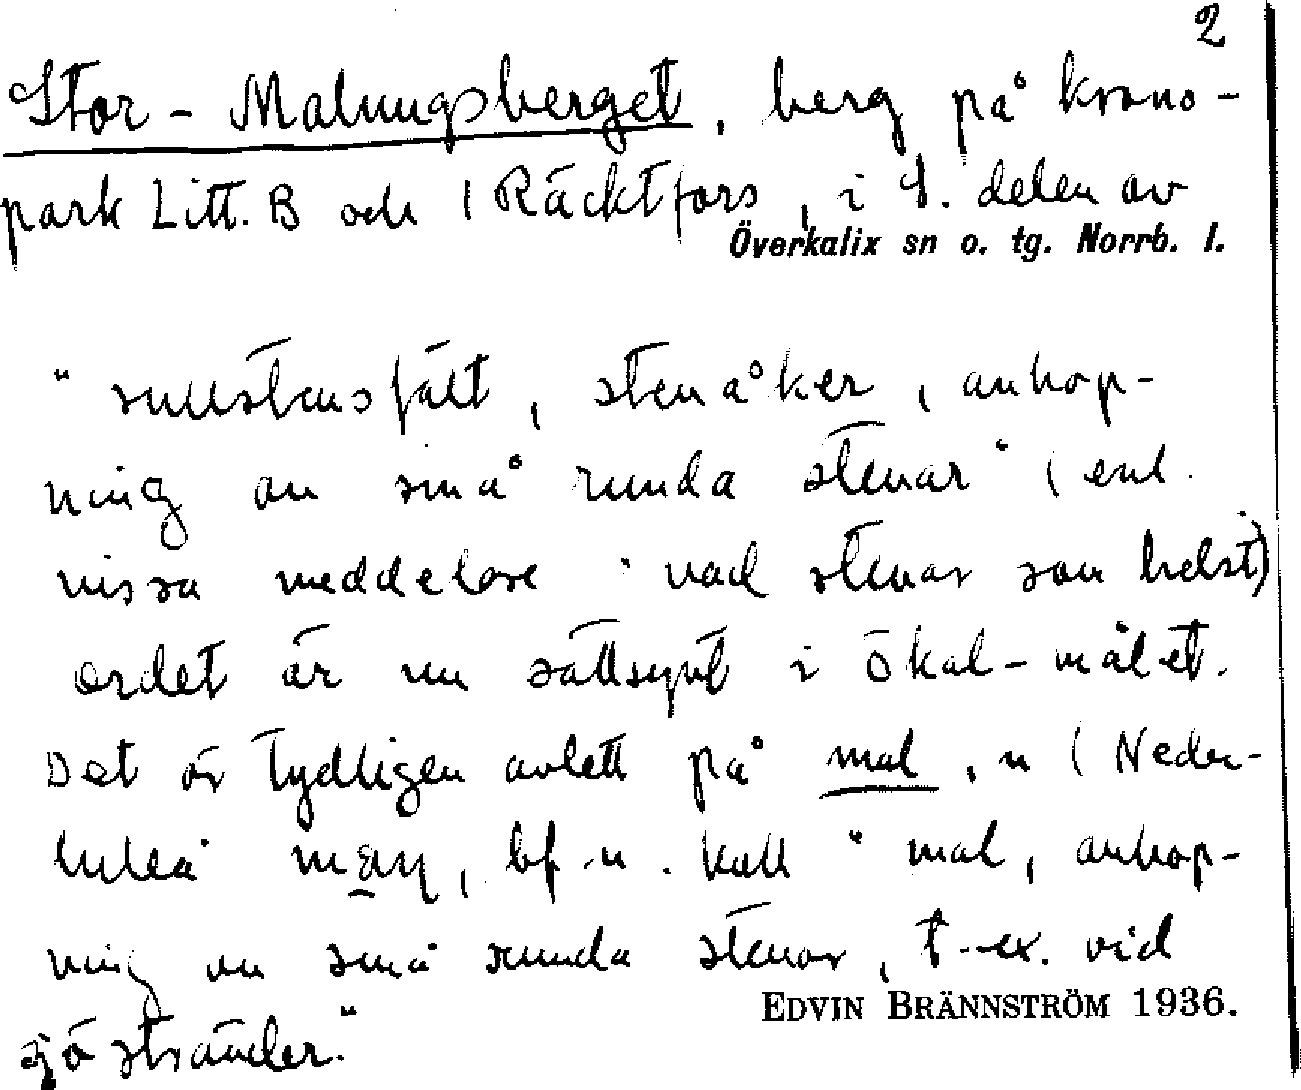 2
Stor-Malungsberget, berg på krono-
park Litt. B och 1 Räcktfors, i S. delen av
Överkalix sn o. tg. Norrb. l.
"rullstensfält, stenåker, anhop-
ning av små runda stenar" (enl.
vissa meddelare: vad stenar som helst)
ordet är nu sällsynt i Ökal-målet.
Det är tydligen avlett på mal, n (Neder-
luleå bf n. koll "mal, anhop-
ning av små runda stenar, t.ex. vid
EDVIN BRÄNNSTRÖM 1936.
sjöstränder."